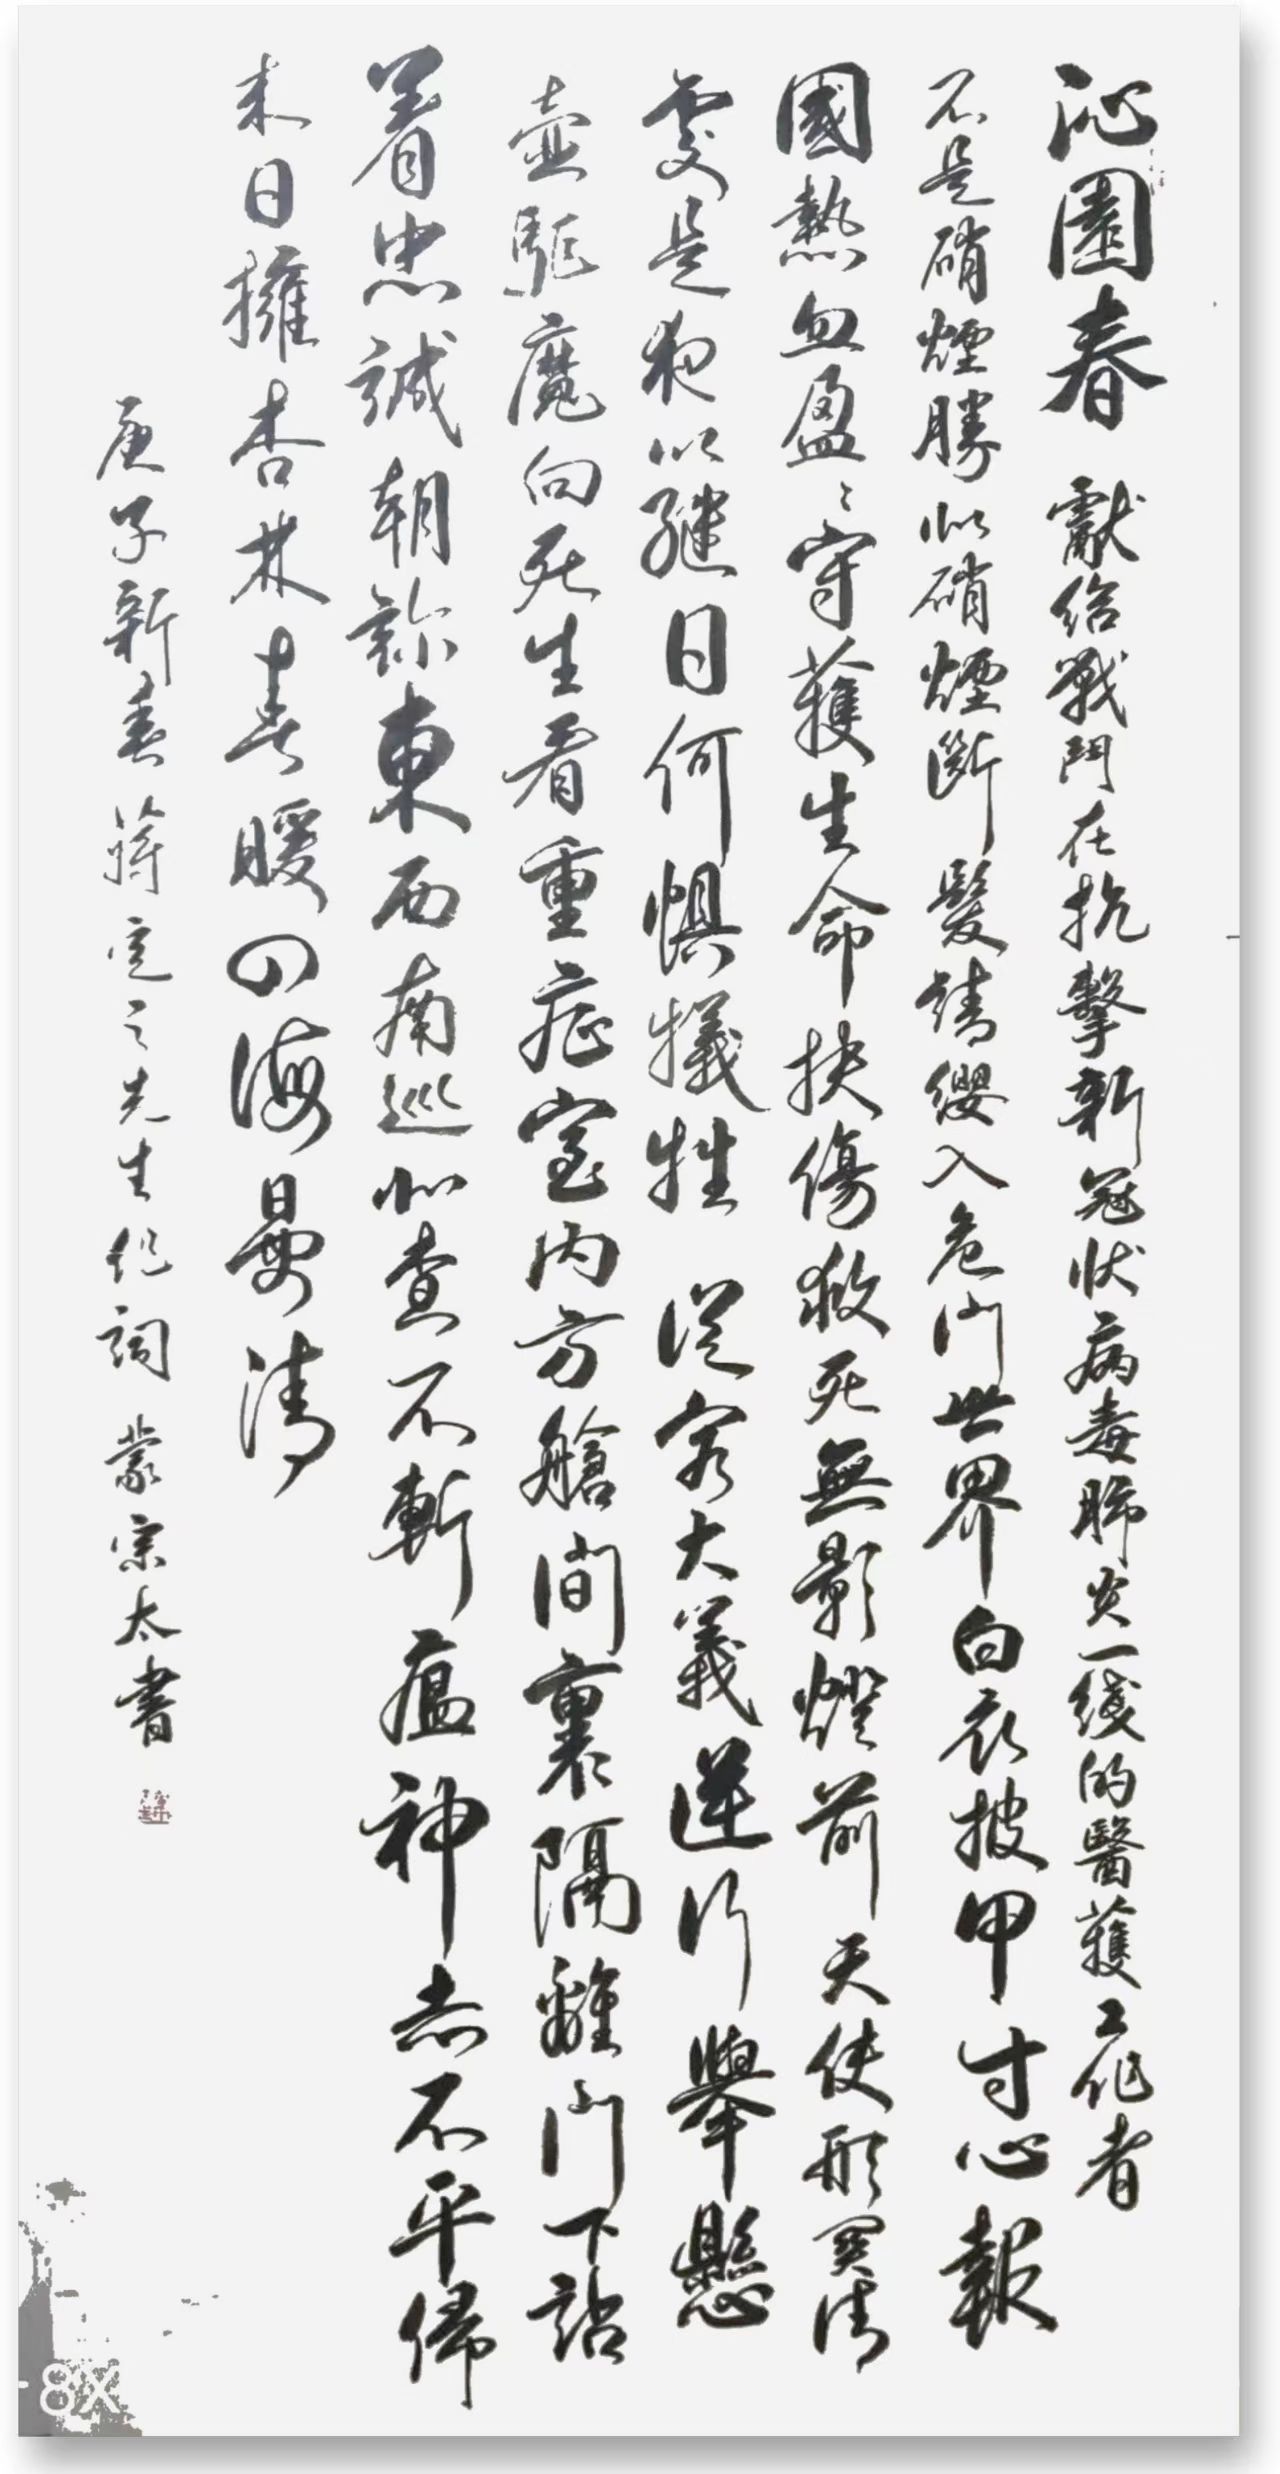 沁園春 獻給戰鬥在抗擊新冠狀病毒肺炎一綫的醫護工作者
不是硝煙勝似硝煙斷髮請纓入危門世界白衣披甲寸心報
國熱血盈〻守護生命扶傷救死無影燈前天使形象清
處是夜以繼日何懼犧牲 從容大義逆行舉懸
壺駆魔向死生看重症室内方艙間裏隔離門下詔
着忠誠朝診東西南巡北查不斬瘟神志不平歸
来日擁杏林春暖四海晏清
庚子新春蔣定之先生作詞 蒙宗太書
8X